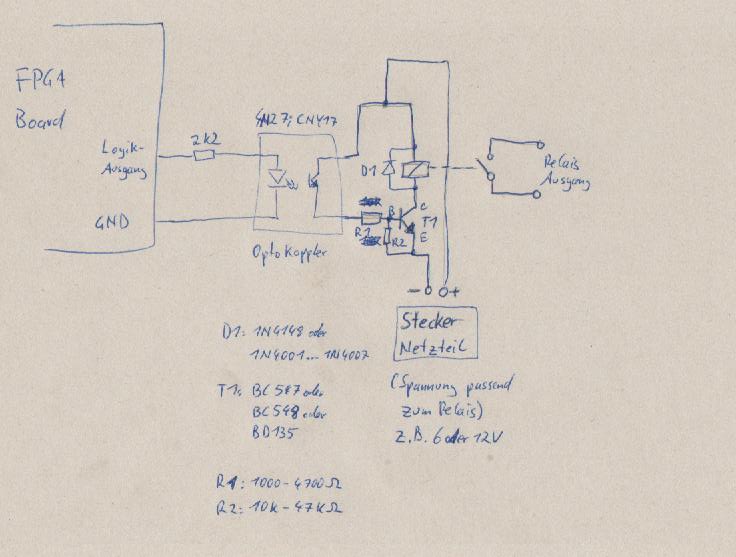 FPGA
Board
Logik-
Ausgang
GND
2k2
4N27; CNY17
Optokoppler
D1
B
C
T1
E
R1
R2
Relais
Ausgang
- +
Stecker
Netzteil
(Spannung passend
zum Relais)
z.B. 6 oder 12V
D1: 1N4148 oder
1N4001... 1N4007
T1: BC547 oder
BC548 oder
BD135
R1: 1000-4700Ω
R2: 10k-47kΩ